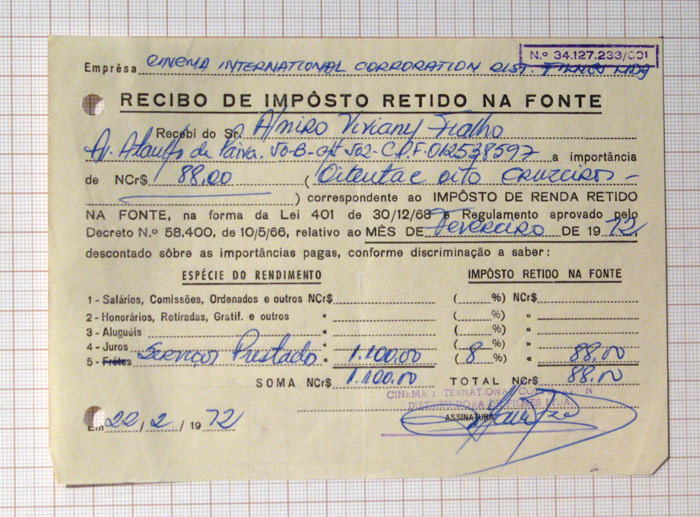 Nº 34.127.233/001
Emprêsa CINEMA INTERNATIONAL CORPORATION DIST. FILMES LTDA
RECIBO DE IMPÔSTO RETIDO NA FONTE
Recebi do Sr. Almiro Viviany Fialho
Av. Ataulfo de Paiva. 50-B- 502- C.P.F 012538597 a importância
de NCr$ 88,00 (Oitenta e oito cruzeiros -
) correspondente ao IMPÔSTO DE RENDA RETIDO
NA FONTE, na forma da Lei 401 de 30/12/68 e Regulamento aprovado pelo
Decreto N.º 58.400, de 10/5/66, relativo ao MÊS DE Fevereiro DE 1972.
descontado sôbre as importâncias pagas, conforme discriminação a saber:
ESPÉCIE DO RENDIMENTO IMPÔSTO RETIDO NA FONTE
1 - Salários, Comissões, Ordenados e outros NCr$ ( %) NCr$
2 - Honorários, Retiradas, Gratif. e outros " ( %) "
3 - Aluguéis " ( %) "
4 - Juros " ( %) "
5 - Frétes Serviços Prestado " 1.100,00 ( 8 %) " 88,00
SOMA NCr$ 1.100,00 TOTAL NCr$ 88,00
CINEMA INTERNATIONAL CORPORATION
DISTRIBUIDORA DE FILMES LTDA.
ASSINATURA
Em 22 / 2 / 1972